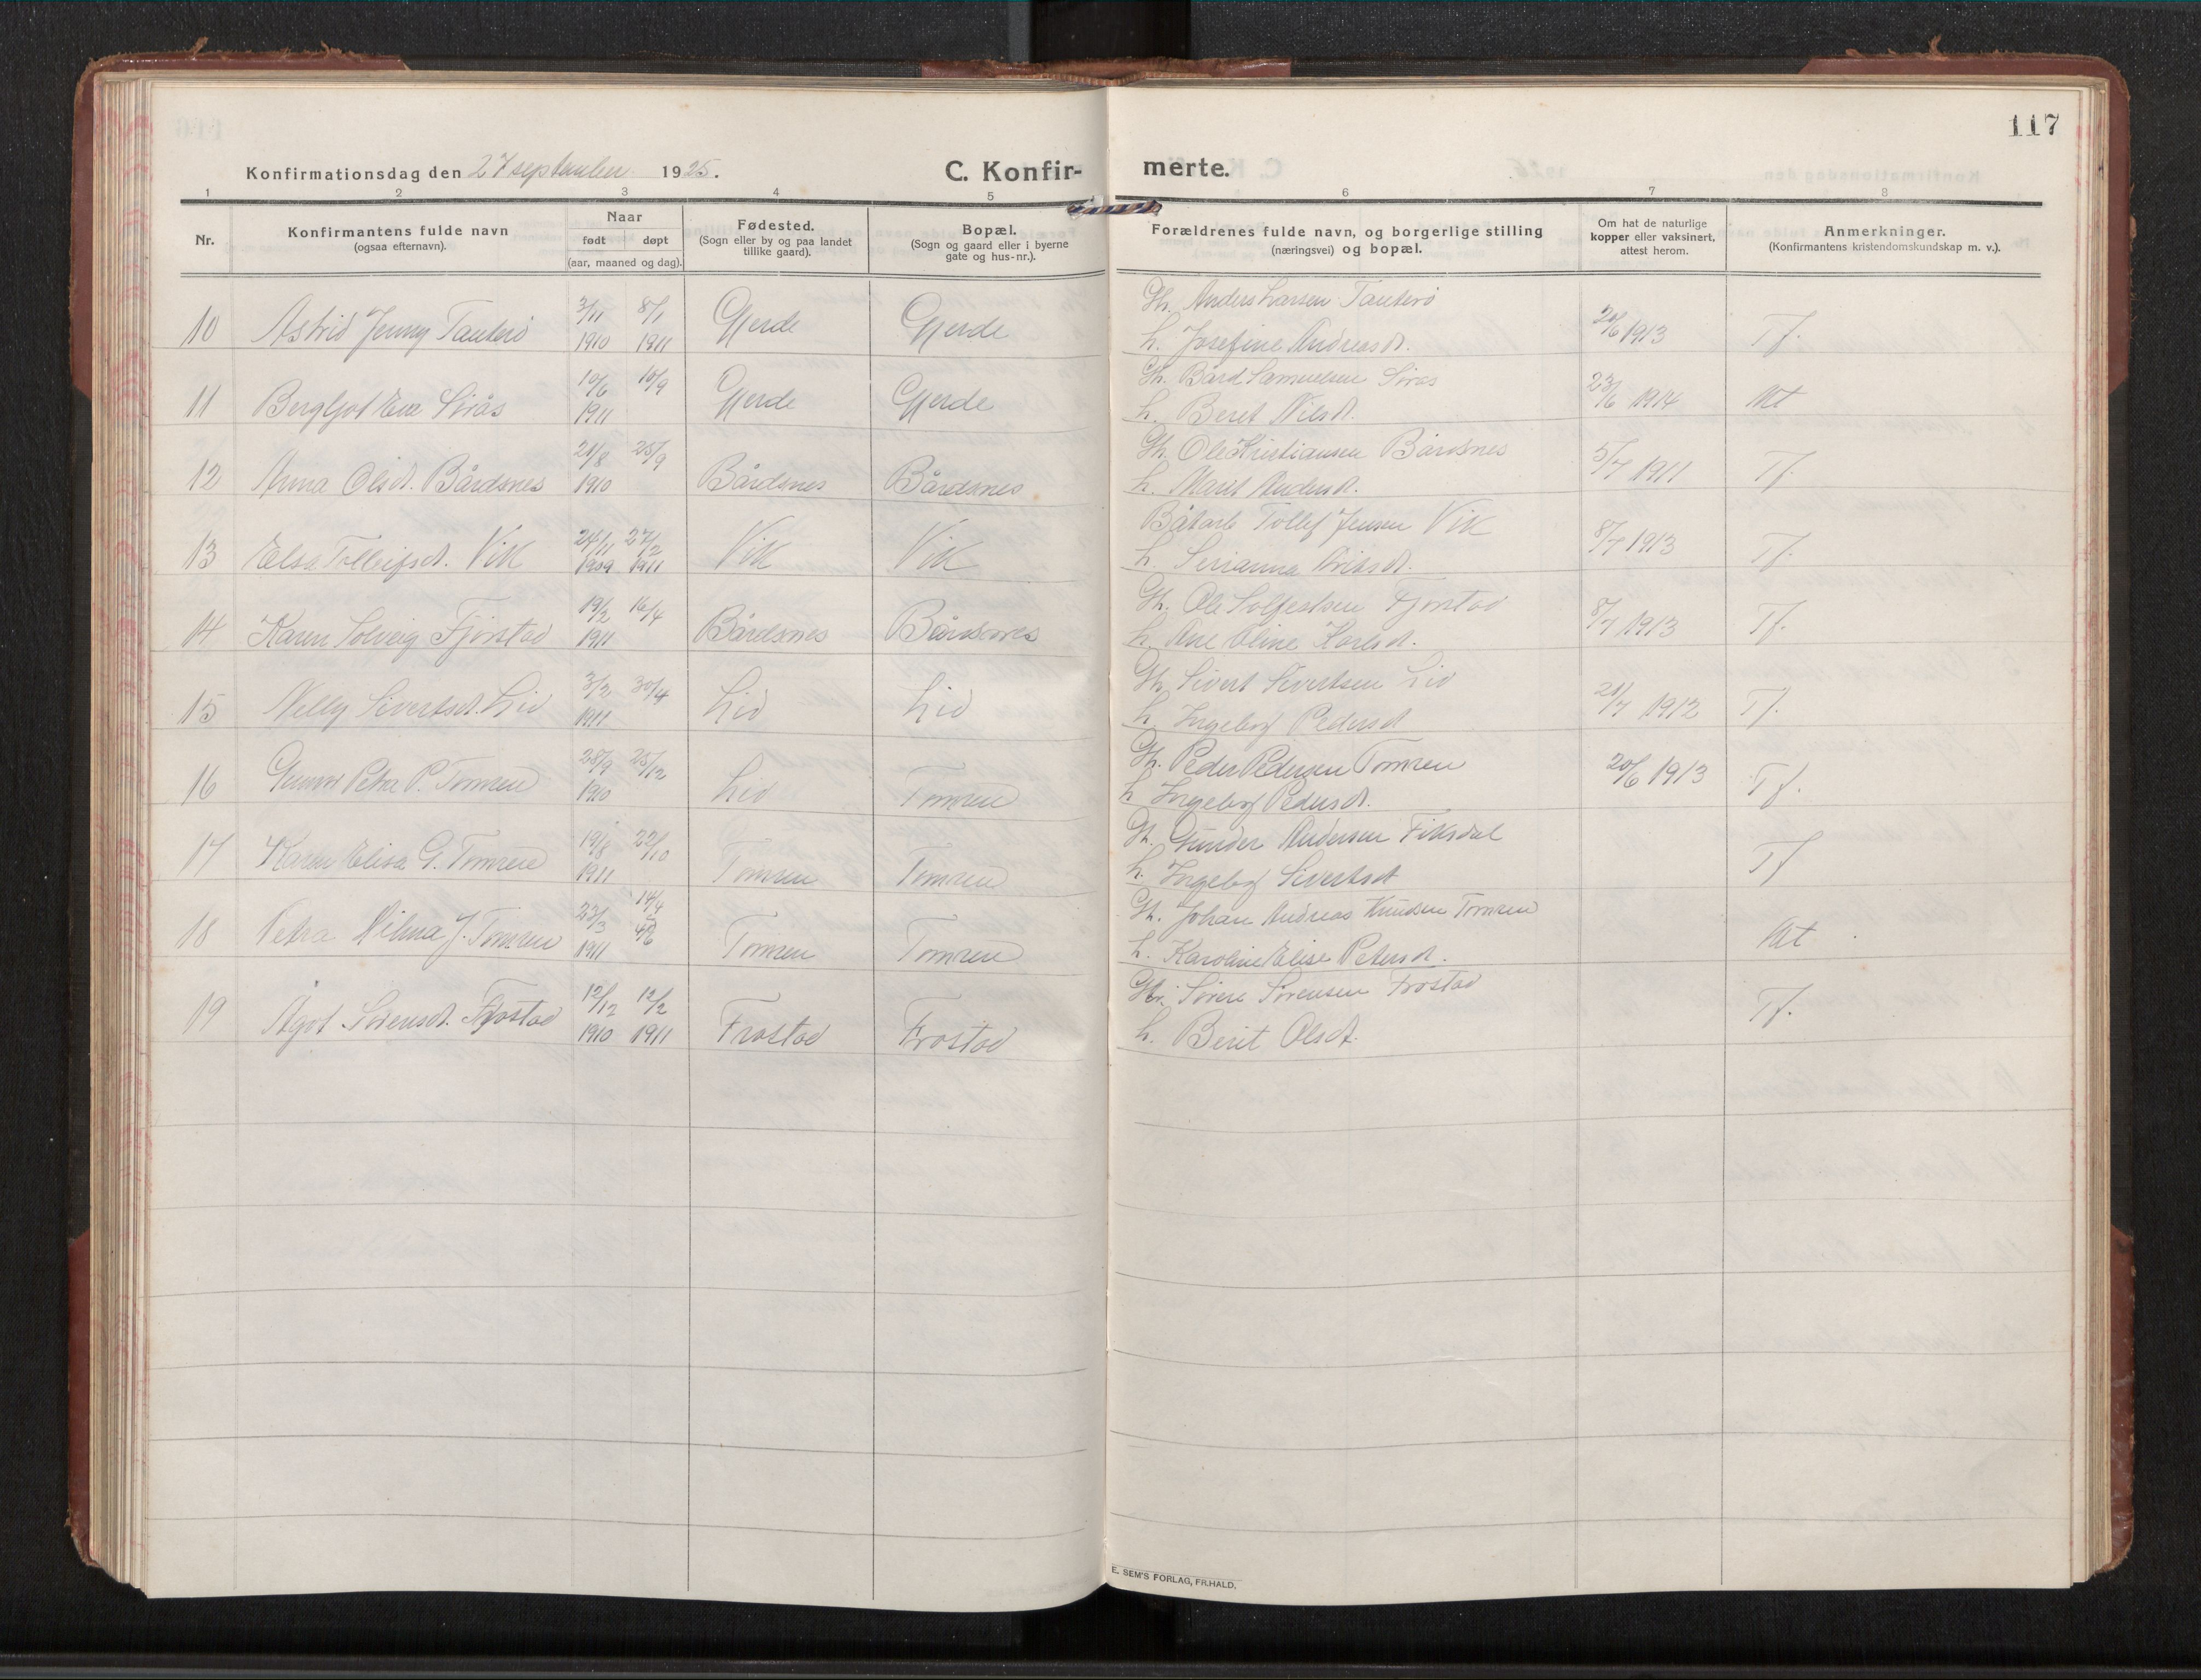 117
Konfirmationsdag den 27 september 1925.
C. Konfir-
merte.
1 2 3 4 5 6 7 8
Nr.
Konfirmantens fulde navn
(ogsaa efternavn).
Naar
født døpt
(aar, maaned og dag).
Fødested.
(Sogn eller by og paa landet
tillike gaard).
Bopæl.
(Sogn og gaard eller i byerne
gate og hus-nr.).
Forældrenes fulde navn, og borgerlige stilling
(næringsvei) og bopæl.
Om hat de naturlige
kopper eller vaksinert,
attest herom.
Anmerkninger.
(Konfirmantens kristendomskundskap m. v.).
3/11 8/1 Gh. Anders Larsen Tauterö
10 Astrid Jenny Tauterö Gjerde Gjerde
1910 1911 h. Josefine Andreasd. 1913 Tf.
10/6 10/9 Gh. Bård Samuelsen Sörås
11 Bergljot Eva Sörås Gjerde Gjerde 23/6 1914 Mt
1911 h. Beret Nilsd.
21/8 25/9 Gh. Ole Kristiansen Bårdsnes
12 Anna Olsd. Bårdsnes 1910 Bårdsnes Bårdsnes 5/7 1911 Tf.
h. Maret Andersd.
Båtarb Tollef Jensen Vik
24/11 27/2
13 Elsa Tolleifsd. Vik Vik Vik 8/7 1913 Tf.
1909 1911 h. Serianna Eriksd.
19/2 16/4 Gh. Ole Solfestsen Fjørstad
14 Karen Solveig Fjørstad 1911 Bårdsnes Bårdsnes 8/7 1913 Tf.
h. Ane Oline Karlsd.
3/2 30/4 Gh. Sivert Sivertsen Lid
15 Nelly Sivertsd. Lid Lid Lid 21/7 1912 Tf.
1911 h. Ingeborg Pedersd
28/9 25/12 Gh. Peder Pedersen Tomren
16 Gunvor Petra P. Tomren Lid Tomren 20/6 1913 Tf.
1910 h Ingeborg Pedersd.
19/8 22/10 Gh. Gunder Andersen Fiksdal
17 Karen Elisa G. Tomren Tomren Tomren Tf
1911 h. Ingeborg Sivertsd
14/4
23/3 Gh. Johan Andreas Knudsen Tomren
18 Petra Vilma J. Tomren Tomren Tomren Mt
1911 h. Karoline Elise Petersd.
12/12 12/2 Gbr. Søren Sørensen Frostad
19 Ågot Sørensd. Frostad Frostad Frostad Tf.
1910 1911 h. Berit Olsd.
E. SEM'S FORLAG, FR.HALD.